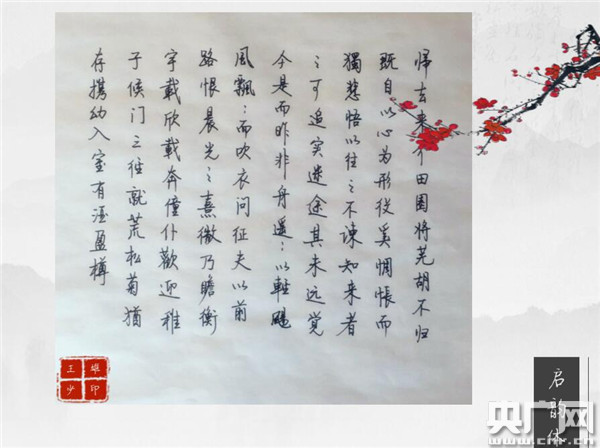 帰去来兮田園将芜胡不归
既自以心为形役奚惆怅而
獨悲悟以往之不谏知来者
之可追实迷途其未远觉
今是而昨非舟遥:以輕飏
风飄:而吹衣问征夫以前
路恨晨光之熹微乃瞻衡
宇载欣载奔僮仆歡迎稚
子候门三径就荒松菊猶
存携幼入室有酒盈樽
王少雄印
启韵体
央广网
www.cnr.cn